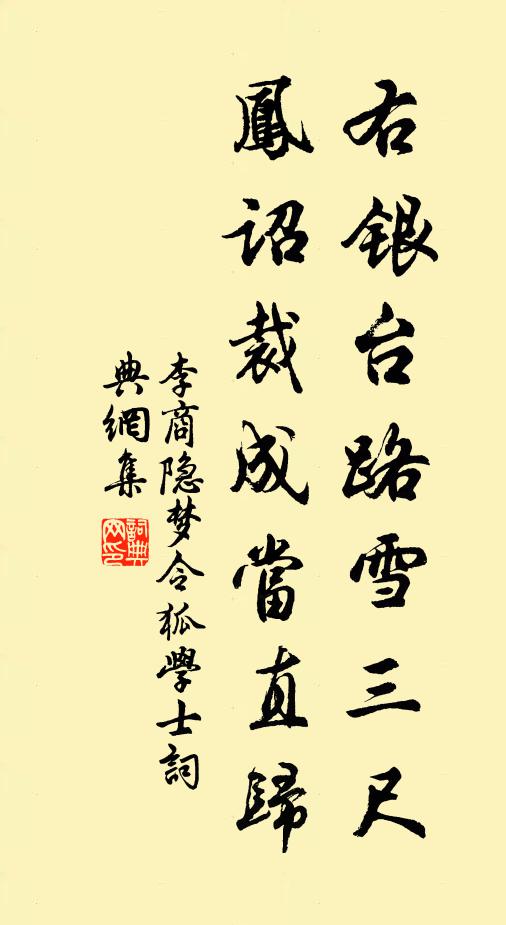 右银台路雪三尺
鳳诏裁成當直歸
李商隐梦令狐學士詞
典網集
詞典网印